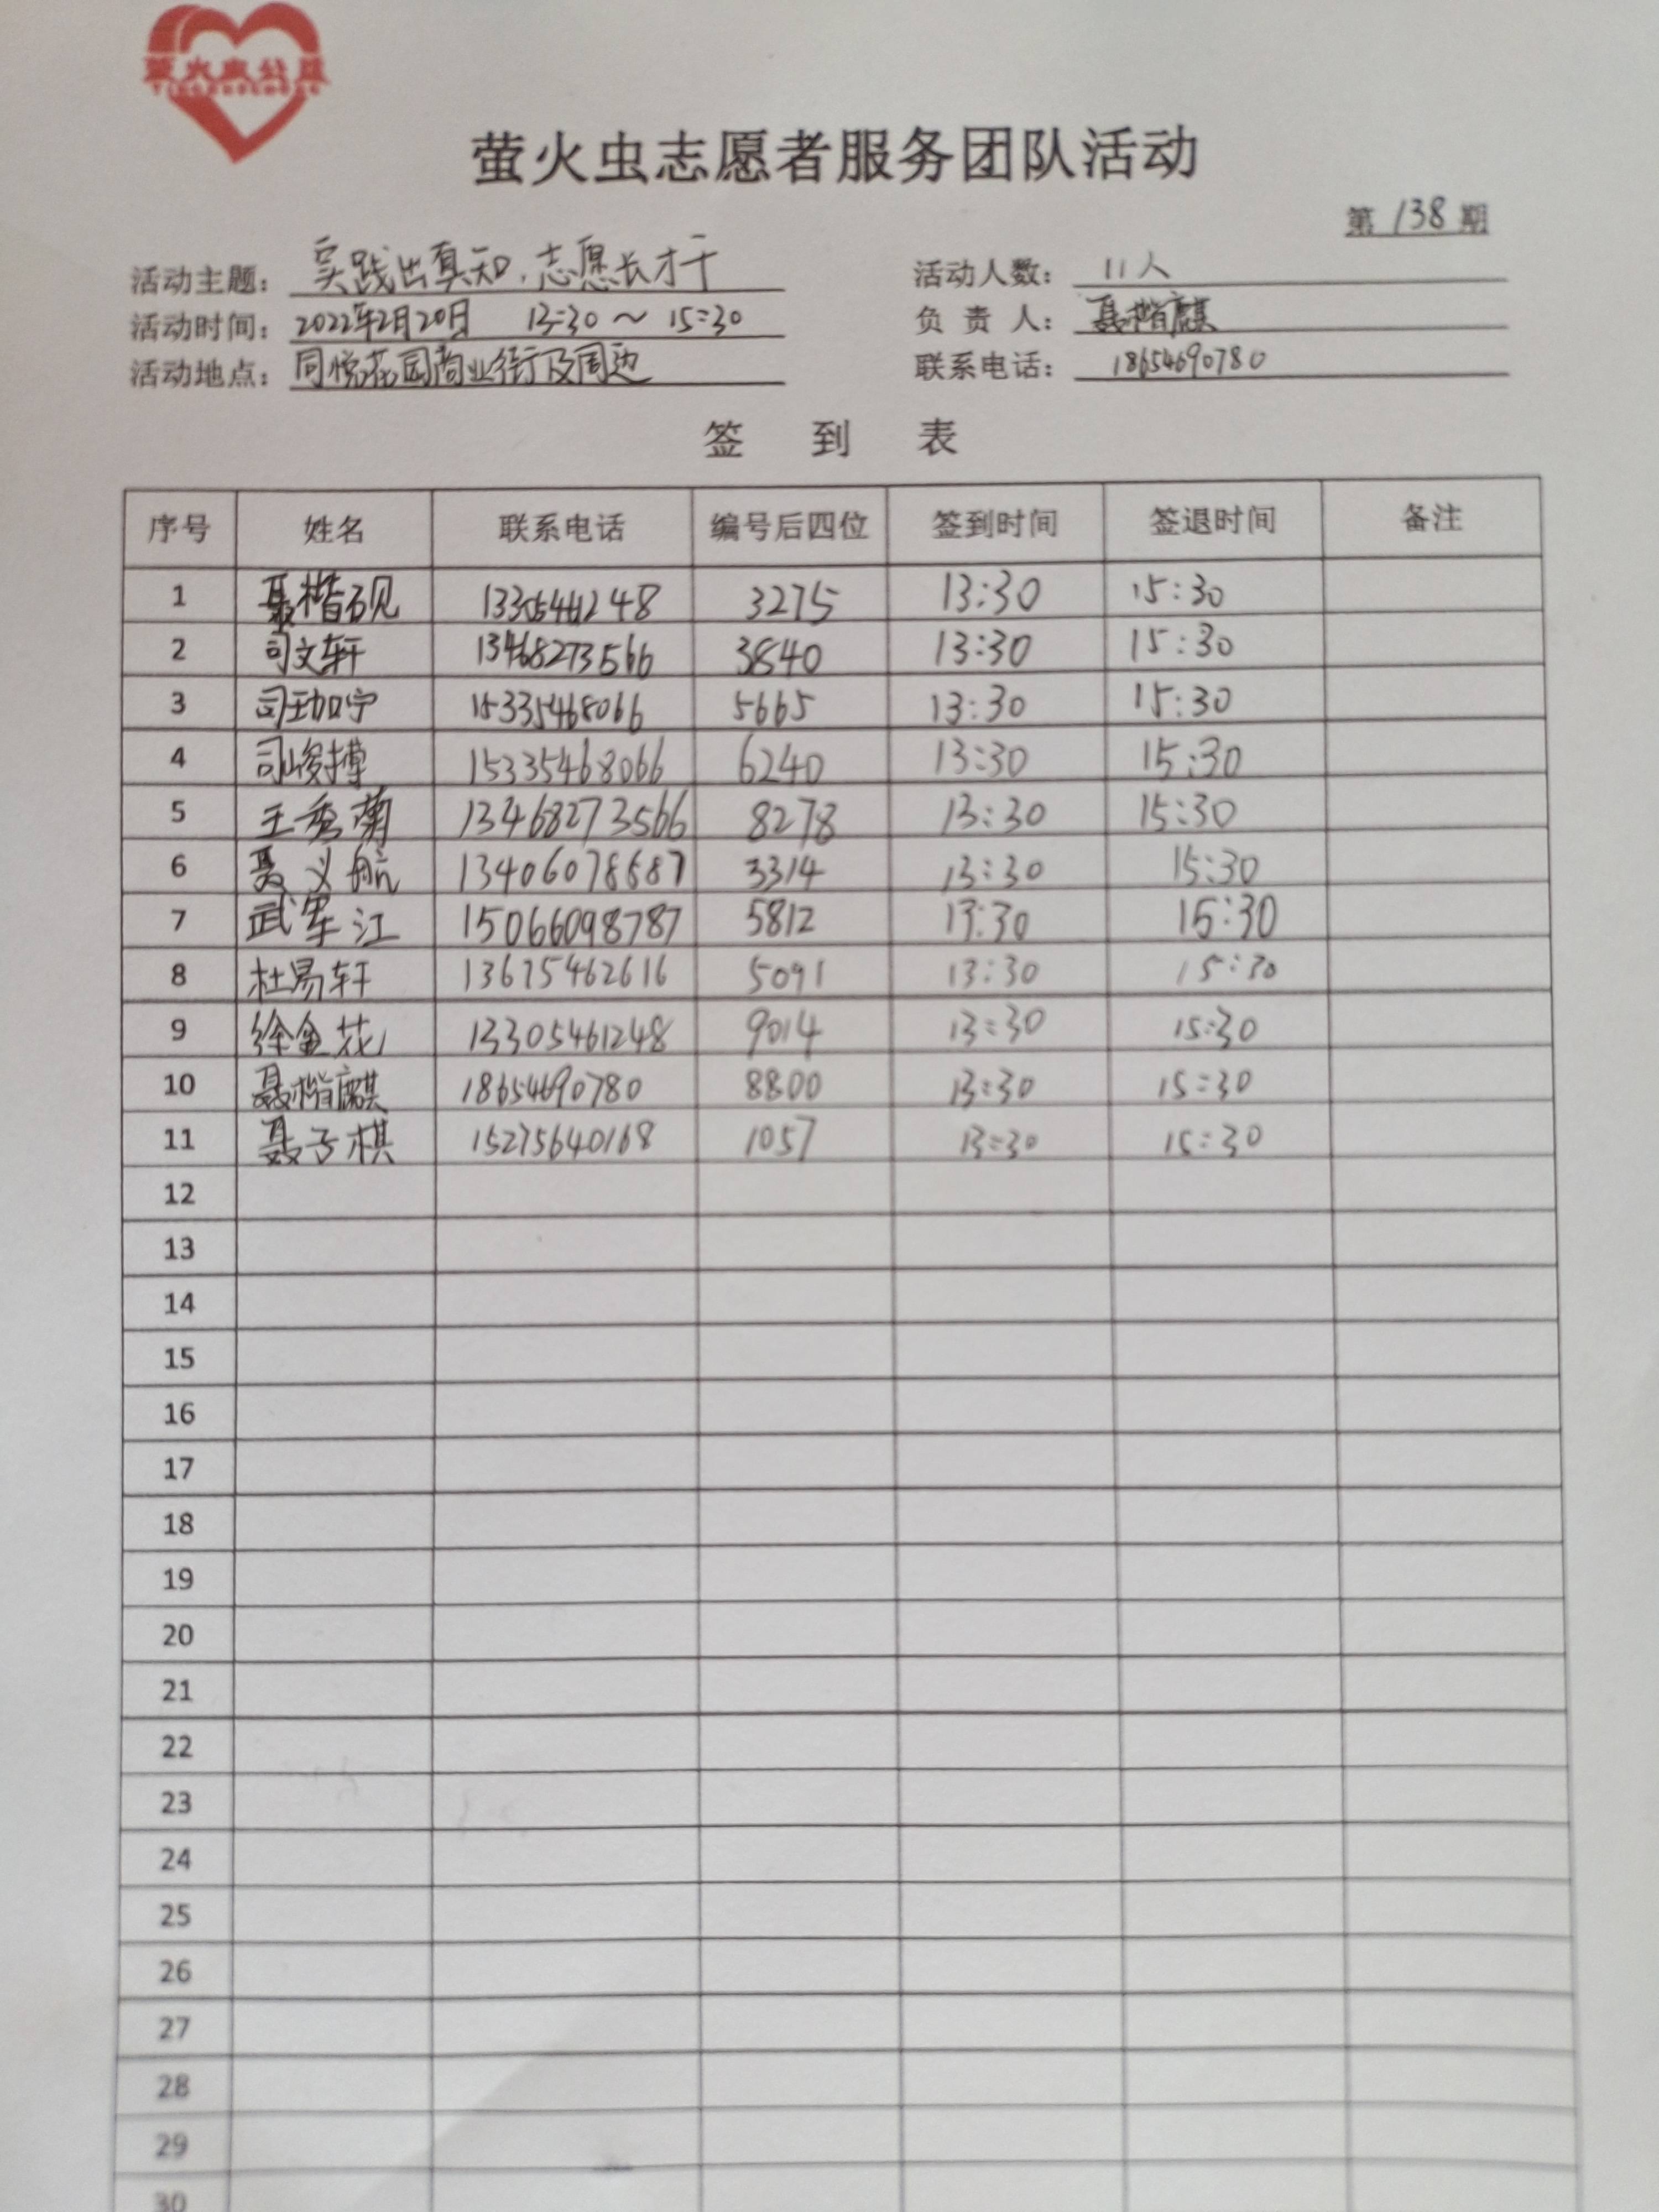 萤火虫公益
YINGHUOCHONG
萤火虫志愿者服务团队活动
第 138 期
活动主题： 实践出真知，志愿长才干 活动人数： 11人
活动时间： 2022年2月20日 13:30～15:30 负 责 人： 聂楷麒
活动地点： 同悦花园商业街及周边 联系电话： 18654690780
签 到 表
序号 姓名 联系电话 编号后四位 签到时间 签退时间 备注
1 聂楷砚 13305461248 3275 13:30 15:30
2 司文轩 13468273566 3840 13:30 15:30
3 司珈宁 15335468066 5665 13:30 15:30
4 司峻搏 15335468066 6240 13:30 15:30
5 王秀兰 13468273566 8278 13:30 15:30
6 聂义航 13406078687 3314 13:30 15:30
7 武军江 15066098787 5812 13:30 15:30
8 杜易轩 13675462616 5091 13:30 15:30
9 徐金花 13305461248 9014 13:30 15:30
10 聂楷麒 18654690780 8800 13:30 15:30
11 聂子棋 15275640168 1057 13:30 15:30
12
13
14
15
16
17
18
19
20
21
22
23
24
25
26
27
28
29
30